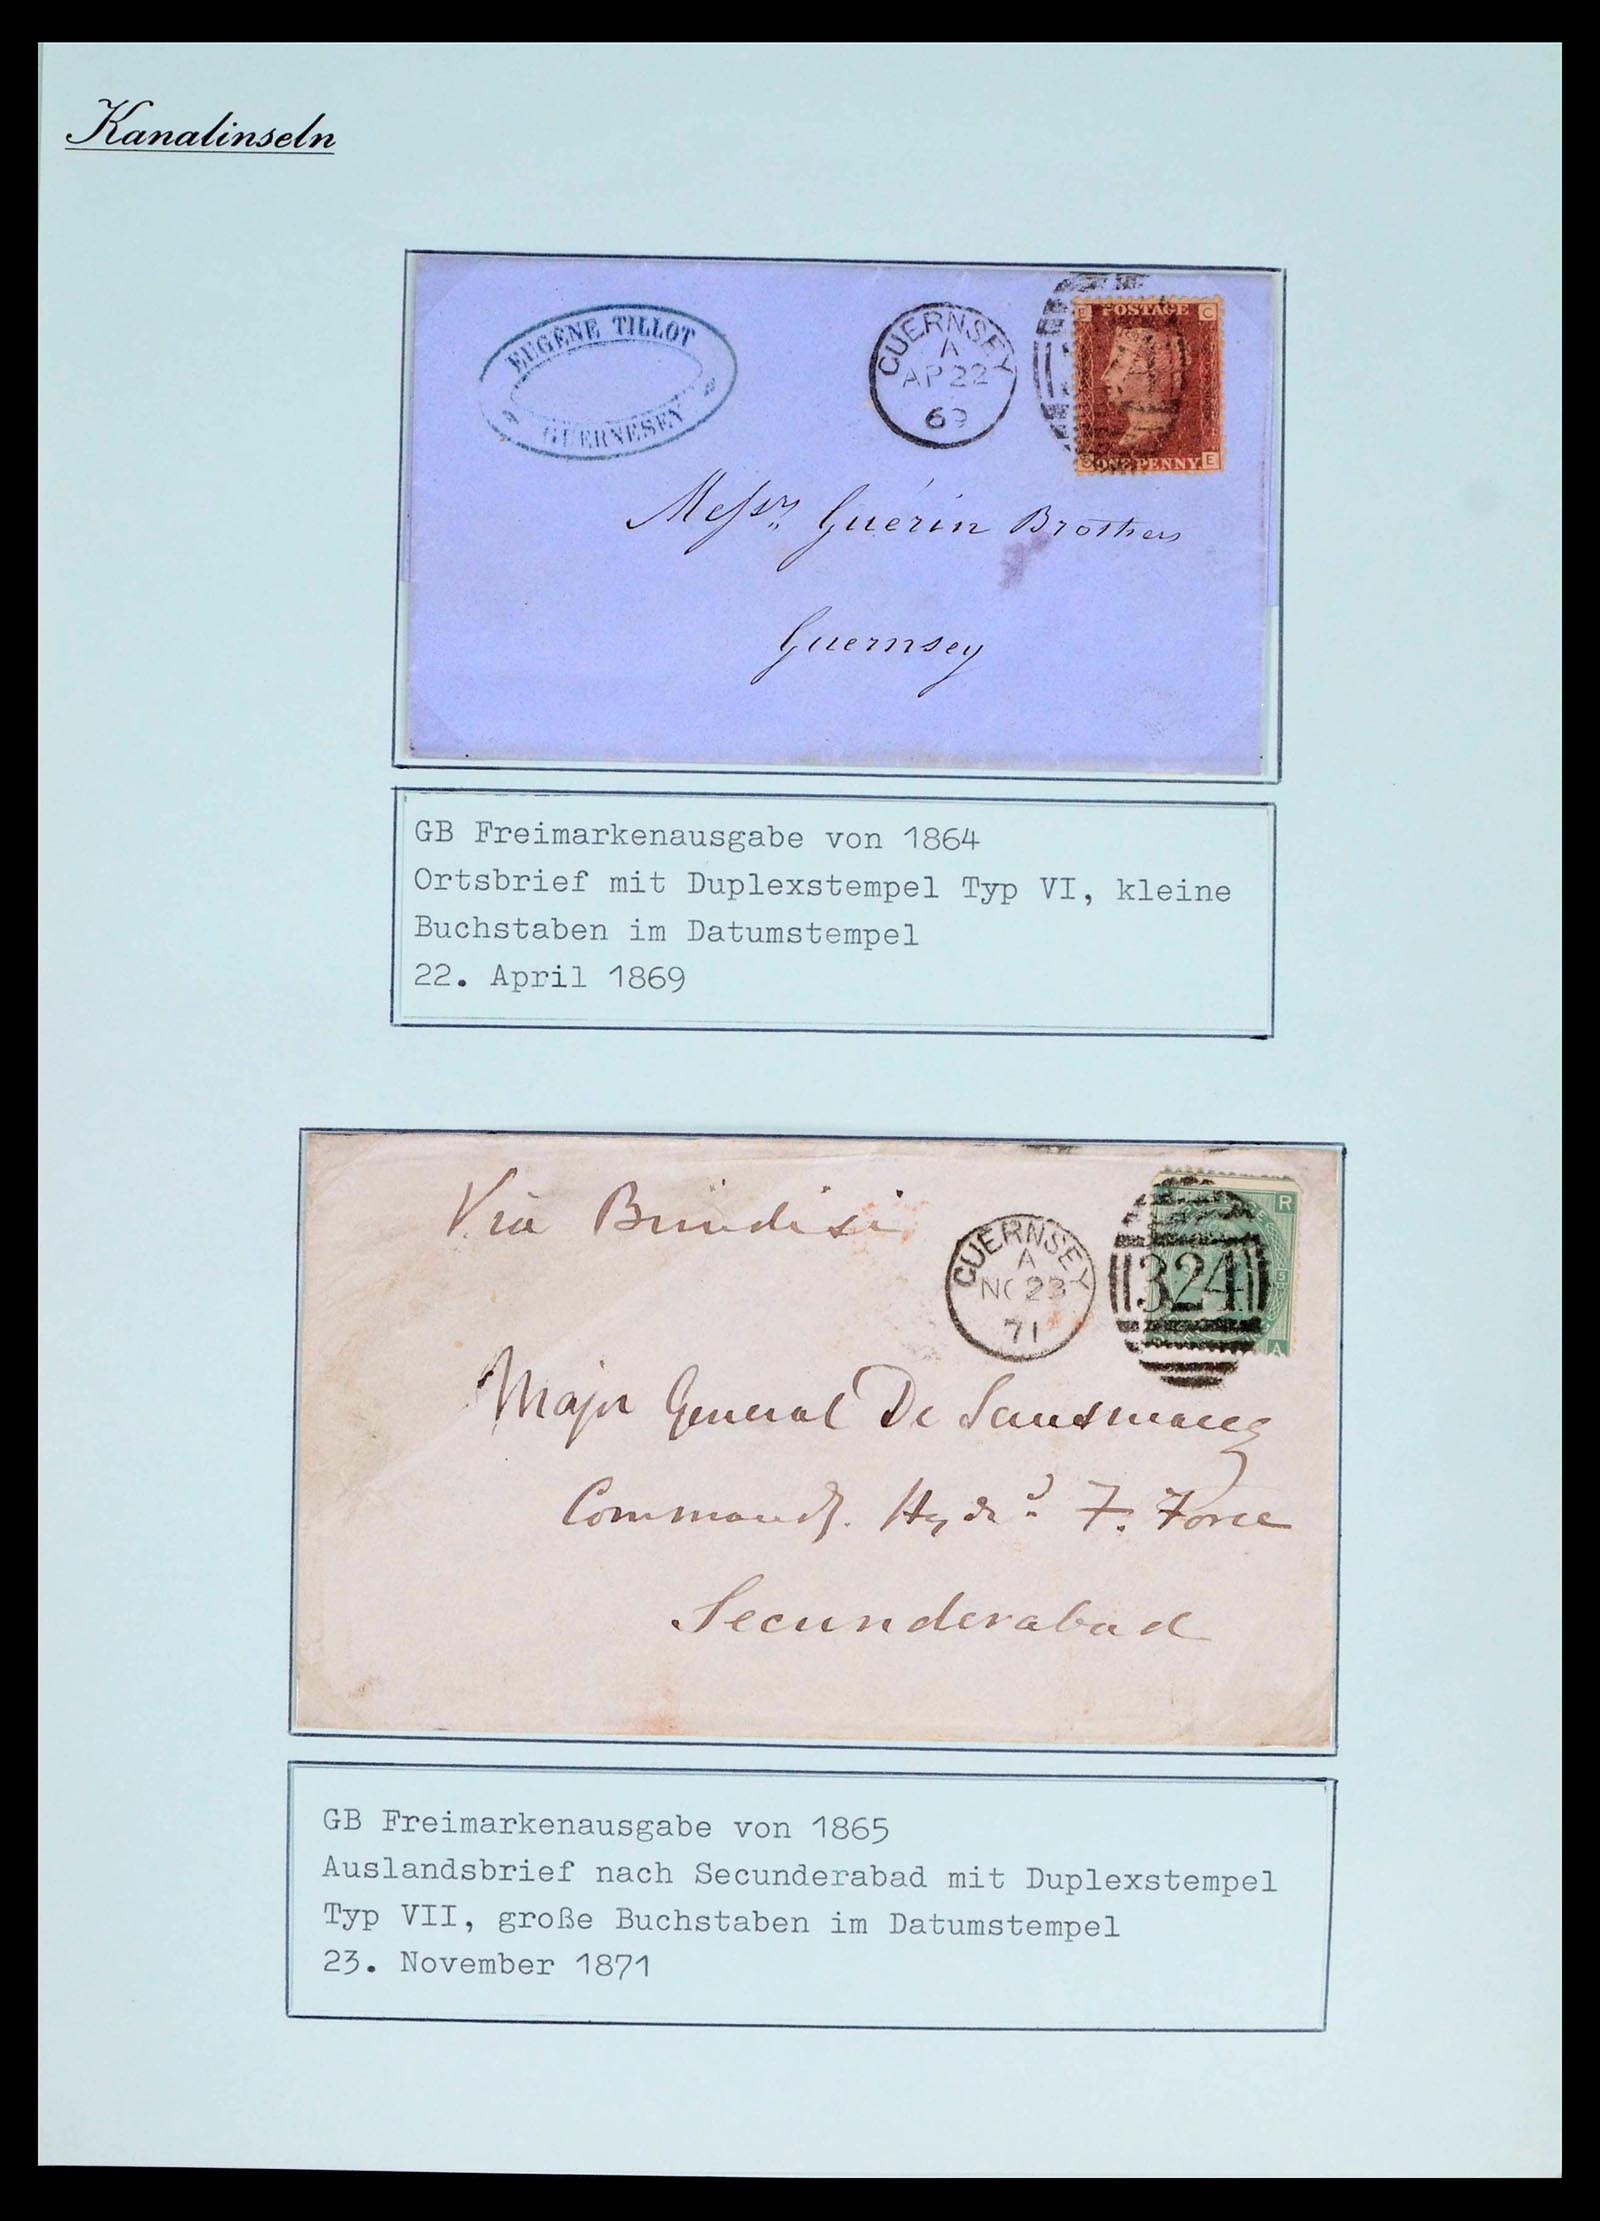 Kanalinseln
EUGÈNE TILLOT
GUERNESEY
GUERNSEY
A
AP 22
69
POSTAGE
C
ONE PENNY
E
Messrs Guérin Brothers
Guernsey
GB Freimarkenausgabe von 1864
Ortsbrief mit Duplexstempel Typ VI, kleine
Buchstaben im Datumstempel
22. April 1869
Via Brindisi
GUERNSEY
A
NO 23
71
324
R
5
A
Major General De Sausmarez
Commandg. Hydrd. F. Force
Secunderabad
GB Freimarkenausgabe von 1865
Auslandsbrief nach Secunderabad mit Duplexstempel
Typ VII, große Buchstaben im Datumstempel
23. November 1871